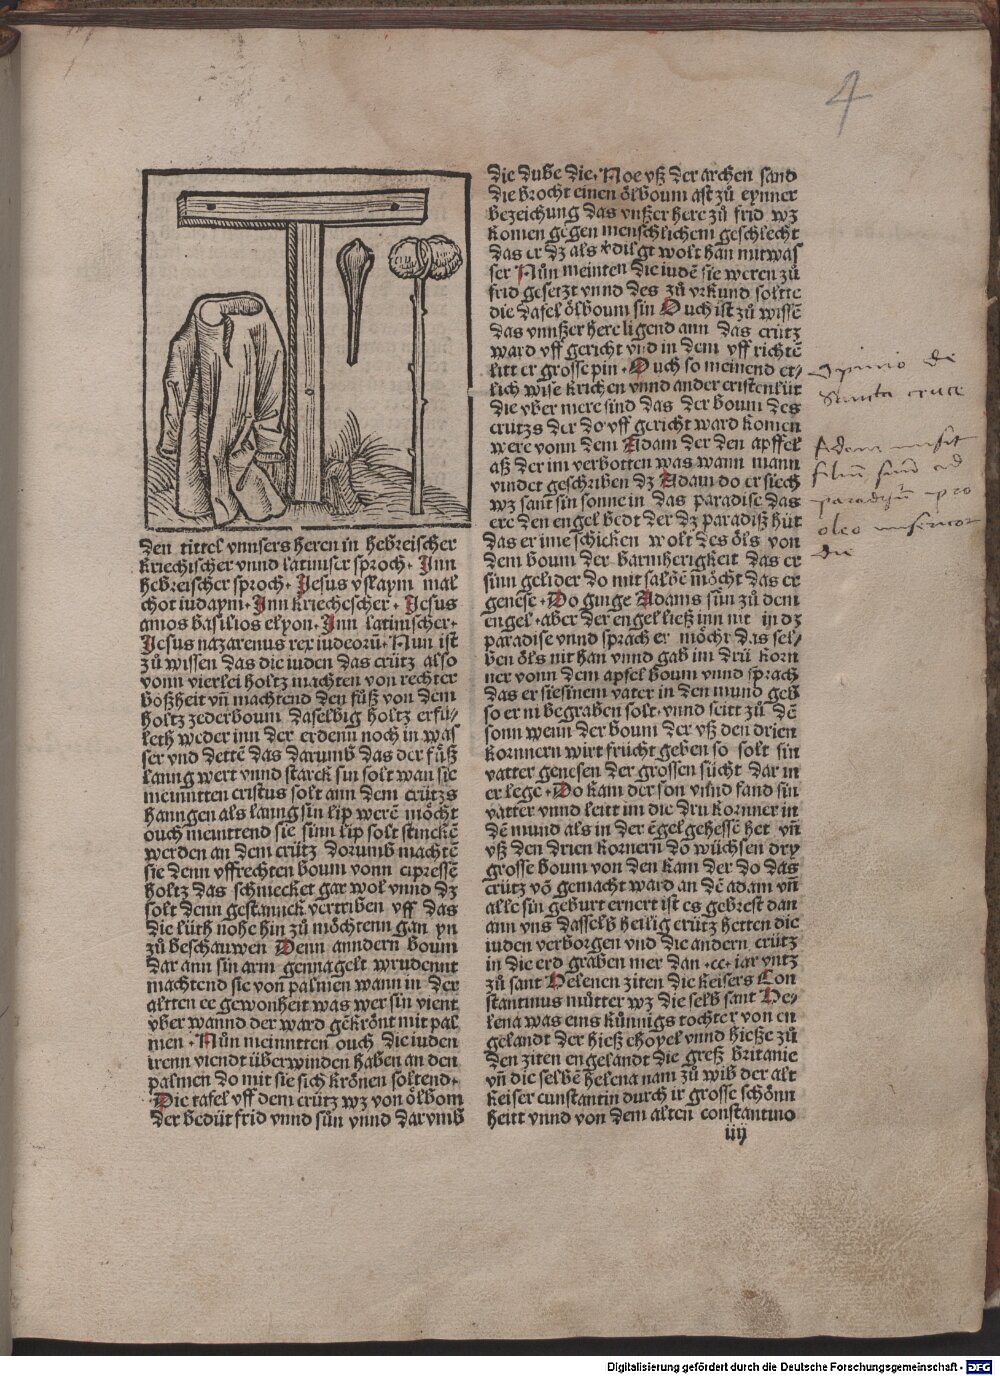 4
den tittel vnnsers heren in hebreischer
kriechischer vnnd latiniser sproch. Inn
hebreischer sproch. Jesus yslaym mal
chot iudaym. Inn kriechescher. Jesus
amos basilios elyon. Inn latinischer.
Jesus nazarenus rex iudeorū. Nun ist
zů wissen das die iuden das crütz also
vonn vierlei holtz machten von rechter
boßheit vn̄ machtend den fůß von dem
holtz zederboum daselbig holtz erfu/
leth weder inn der erdenn noch in was
ser vnd dettē das darumb das der fůß
lanng wert vnnd starck sin solt wan sie
meinntten cristus solt ann dem crützs
hanngen als lanng sin lip werē mŏcht
ouch meinttend sie sinn lip solt stinckē
werden an dem crütz dorumb machtē
sie denn vffrechten boum vonn cipressē
holtz das schmecket gar wol vnnd dz
solt denn gestannck vertriben vff das
die lüth nohe hin zů mŏchtenn gan yn
zů beschauwen Denn anndern boum
dar ann sin arm gennagelt wrudennt
machtend sie von palmen wann in der
altten ee gewonheit was wer sin vient
vber wannd der ward gekrŏnt mit pal
men. Nůn meinntten ouch die iuden
irenn viendt überwinden haben an den
palmen do mit sie sich krŏnen soltend.
Die tafel vff dem crütz wz von ŏlbom
der bedüt frid vnnd sůn vnnd dar vmb
die dube die. Noe vß der archen sand
die brocht einen ŏlboum ast zů eynner
bezeichung das vnßer here zů frid wz
komen gegen menschlichem geschlecht
das er dz als v̓dilgt wolt han mit was
ser Nůn meinten die iudē sie weren zů
frid gesetzt vnnd des zů vrkund soltte
die dafel ŏlboum sin Ouch ist zů wissē
das vnnßer here ligend ann das crütz
ward vff gericht vnd in dem vff richtē
litt er grosse pin. Ouch so meinend et/
lich wise krichen vnnd ander cristenlüt
die vber mere sind das der boum des
crutzs der do vff gericht ward komen
were vonn dem Adam der den apffel
aß der im verbotten was wann mann
vindet geschriben dz Adam do er siech
wz sant sin sonne in das paradise das
ere den engel bedt der dz paradiß hüt
das er ime schicken wolt des ŏls von
dem boum der barmherigkeit das er
sinn gelider do mit salbē mŏcht das er
genese. Do ginge Adams sůn zů dem
engel. aber der engel ließ inn nit in dz
paradise vnnd sprach er mŏcht das sel/
ben ŏls nit han vnnd gab im drü korn
ner vonn dem apfel boum vnnd sprach
das er sie sinem vater in den mund geb
so er in begraben solt. vnnd seitt zů dē
sonn wenn der boum der vß den drien
kornnern wirt frücht geben so solt sin
vatter genesen der grossen sücht dar in
er lege. Do kam der son vnnd fand sin
vatter vnnd leitt im die dru kornner in
dē mund als in der ēgel gehessē het vn̄
vß den drien kornern do wůchsen dry
grosse boum von den kam der do das
crütz vō gemacht ward an dē adam vn̄
alle sin geburt ernert ist es gebrest dan
ann vns dasselb heilig crütz hetten die
iuden verborgen vnd die andern crütz
in die erd graben mer dan .cc. iar vntz
zů sant Helenen ziten die keisers Con
stantinus můtter wz die selb sant He/
lena was eins kůnnigs tochter von en
gelandt der hieß choyel vnnd hieße zů
den ziten engelandt die greß britanie
vn̄ die selbē helena nam zů wib der alt
keiser cunstantin durch ir grosse schŏnn
heitt vnnd von dem alten constantino
iiij
Opinio de
Sancta cruce
Adam misit
filiū suū ad
paradysū pro
oleo misericor
die
Digitalisierung gefördert durch die Deutsche Forschungsgemeinschaft - DFG